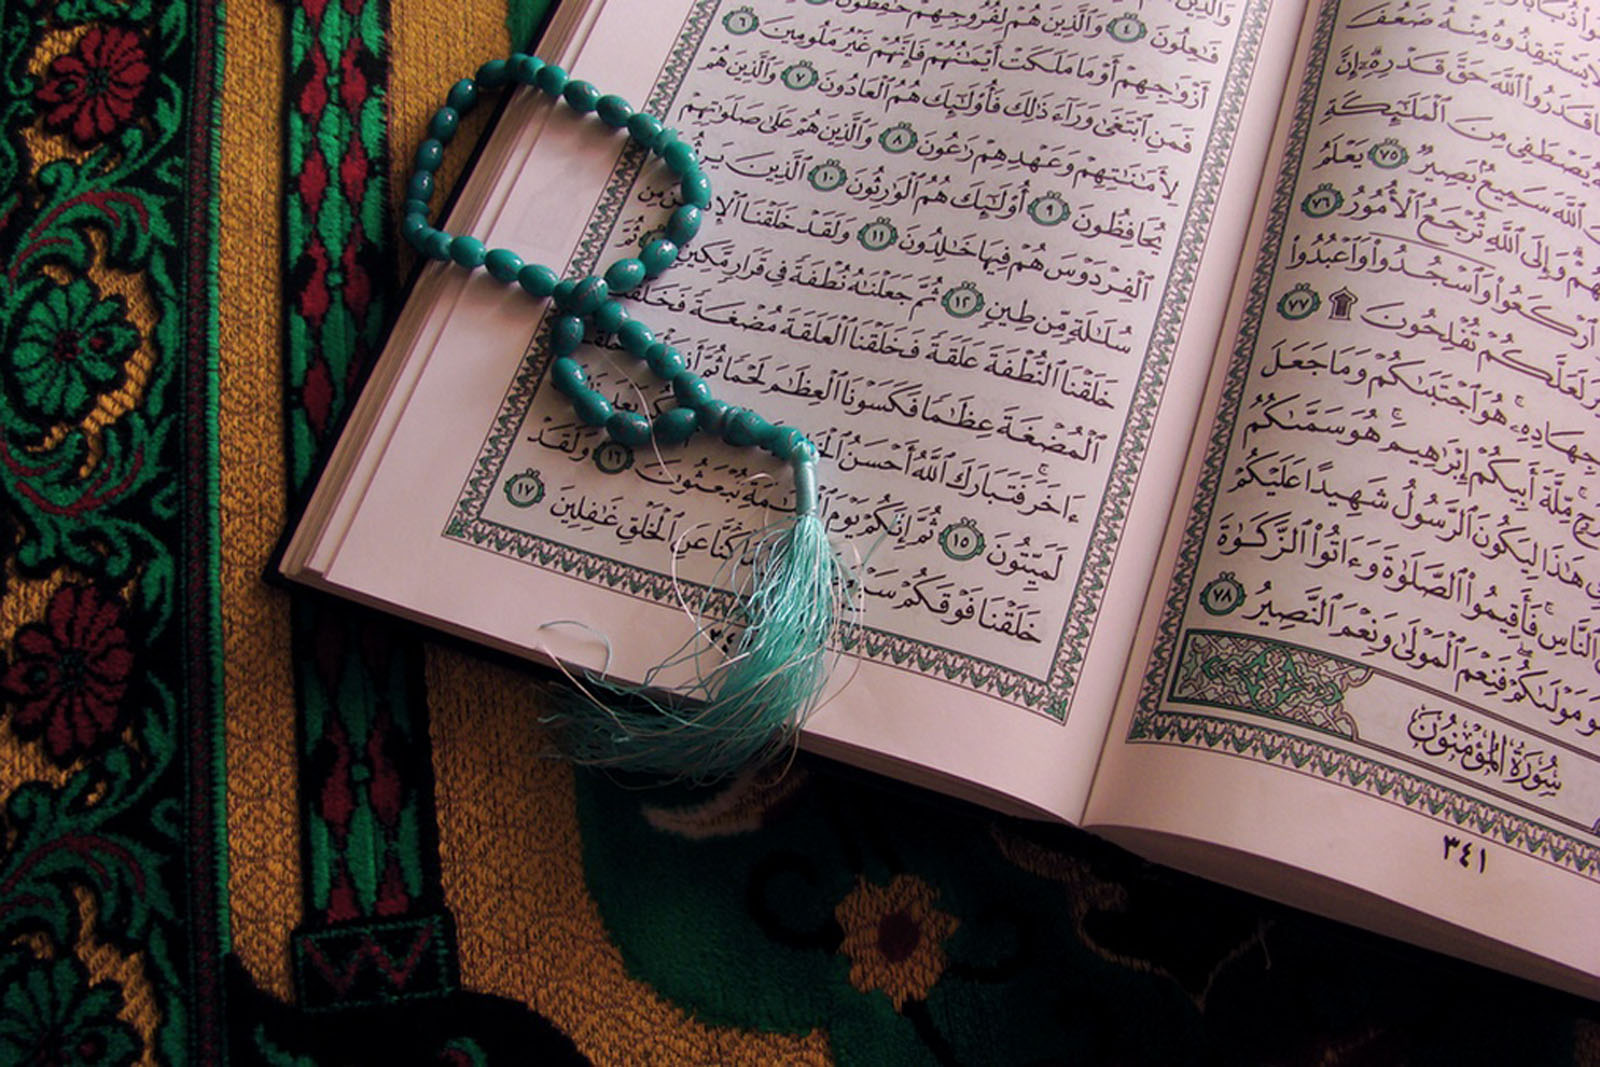 يَسْتَنقِذُوهُ مِنْهُ ضَعُفَ
قَدَرُوا۟ ٱللَّهَ حَقَّ قَدْرِهِۦٓ إِنَّ
يَصْطَفِى مِنَ ٱلْمَلَٰٓئِكَةِ
ٱللَّهَ سَمِيعٌۢ بَصِيرٌ ٧٥ يَعْلَمُ
وَإِلَى ٱللَّهِ تُرْجَعُ ٱلْأُمُورُ ٧٦
ٱرْكَعُوا۟ وَٱسْجُدُوا۟ وَٱعْبُدُوا۟
لَعَلَّكُمْ تُفْلِحُونَ ۩ ٧٧
جِهَادِهِۦ هُوَ ٱجْتَبَىٰكُمْ وَمَا جَعَلَ
حَرَجٍ مِّلَّةَ أَبِيكُمْ إِبْرَٰهِيمَ هُوَ سَمَّىٰكُمُ
هَٰذَا لِيَكُونَ ٱلرَّسُولُ شَهِيدًا عَلَيْكُمْ
ٱلنَّاسِ فَأَقِيمُوا۟ ٱلصَّلَوٰةَ وَءَاتُوا۟ ٱلزَّكَوٰةَ
مَوْلَىٰكُمْ فَنِعْمَ ٱلْمَوْلَىٰ وَنِعْمَ ٱلنَّصِيرُ ٧٨
سُورَةُ الْمُؤْمِنُونَ
٣٤١
فَٰعِلُونَ ٤ وَٱلَّذِينَ هُمْ لِفُرُوجِهِمْ حَٰفِظُونَ
أَزْوَٰجِهِمْ أَوْ مَا مَلَكَتْ أَيْمَٰنُهُمْ فَإِنَّهُمْ غَيْرُ مَلُومِينَ ٦
فَمَنِ ٱبْتَغَىٰ وَرَآءَ ذَٰلِكَ فَأُو۟لَٰٓئِكَ هُمُ ٱلْعَادُونَ ٧ وَٱلَّذِينَ هُمْ
لِأَمَٰنَٰتِهِمْ وَعَهْدِهِمْ رَٰعُونَ ٨ وَٱلَّذِينَ هُمْ عَلَىٰ صَلَوَٰتِهِمْ
يُحَافِظُونَ ٩ أُو۟لَٰٓئِكَ هُمُ ٱلْوَٰرِثُونَ ١٠ ٱلَّذِينَ
ٱلْفِرْدَوْسَ هُمْ فِيهَا خَٰلِدُونَ ١١ وَلَقَدْ خَلَقْنَا مِن
سُلَٰلَةٍ مِّن طِينٍ ١٢ ثُمَّ جَعَلْنَٰهُ نُطْفَةً فِى قَرَارٍ مَّكِينٍ ثُمَّ
خَلَقْنَا ٱلنُّطْفَةَ عَلَقَةً فَخَلَقْنَا ٱلْعَلَقَةَ مُضْغَةً
ٱلْمُضْغَةَ عِظَٰمًا فَكَسَوْنَا ٱلْعِظَٰمَ لَحْمًا ثُمَّ
ءَاخَرَ فَتَبَارَكَ ٱللَّهُ أَحْسَنُ بَعْدَ
لَمَيِّتُونَ ١٥ ثُمَّ إِنَّكُمْ يَوْمَ تُبْعَثُونَ ١٦ وَلَقَدْ
خَلَقْنَا فَوْقَكُمْ كُنَّا عَنِ ٱلْخَلْقِ غَٰفِلِينَ ١٧